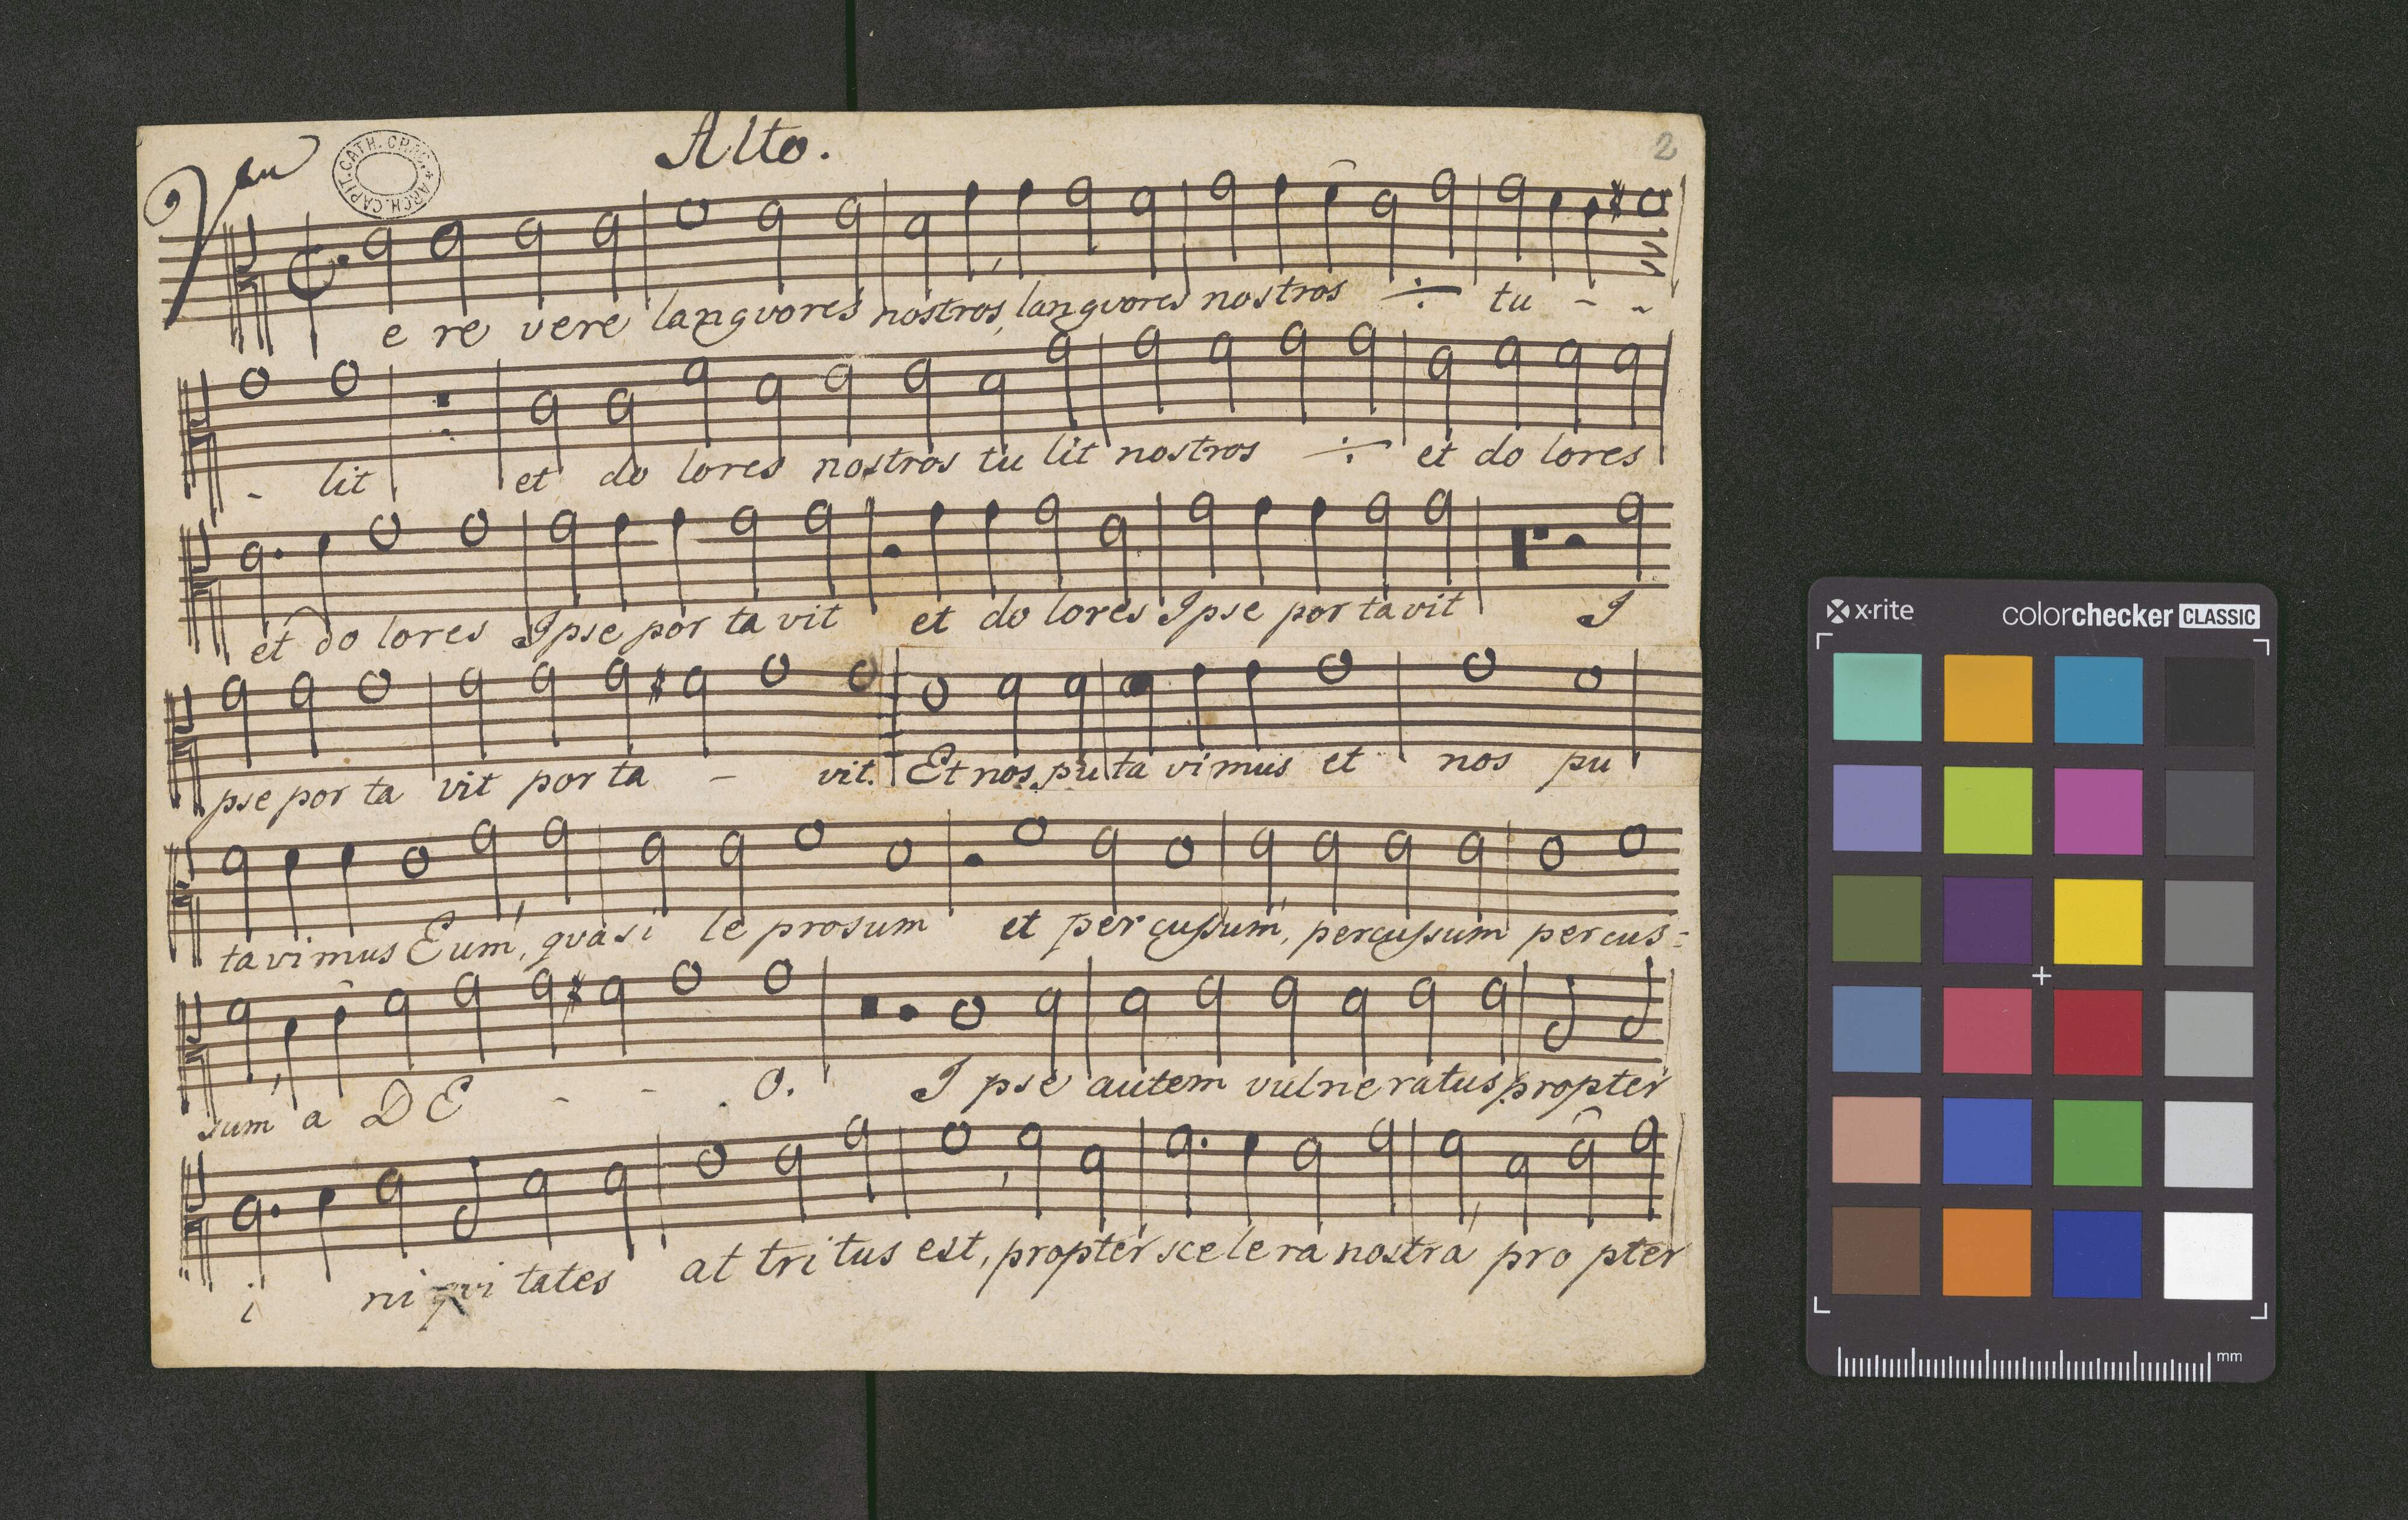 Alto.
2
CAPIT. CATH. CRAC. * ARCH.
V e re vere langvores nostros, langvores nostros ÷ tu - -
- lit et do lores nostros tu lit nostros ÷ et do lores
et do lores Ipse por ta vit et do lores Ipse por tavit I
pse por ta vit por ta - vit. Et nos pu ta vimus et nos pu
tavimus Eum, qvasi le prosum et per cuſsum, percuſsum percus=
sum a DE - - O. I pse autem vulneratus propter
i ni qvi tates at tri tus est, propter scelera nostra pro pter
x·rite
colorchecker CLASSIC
mm